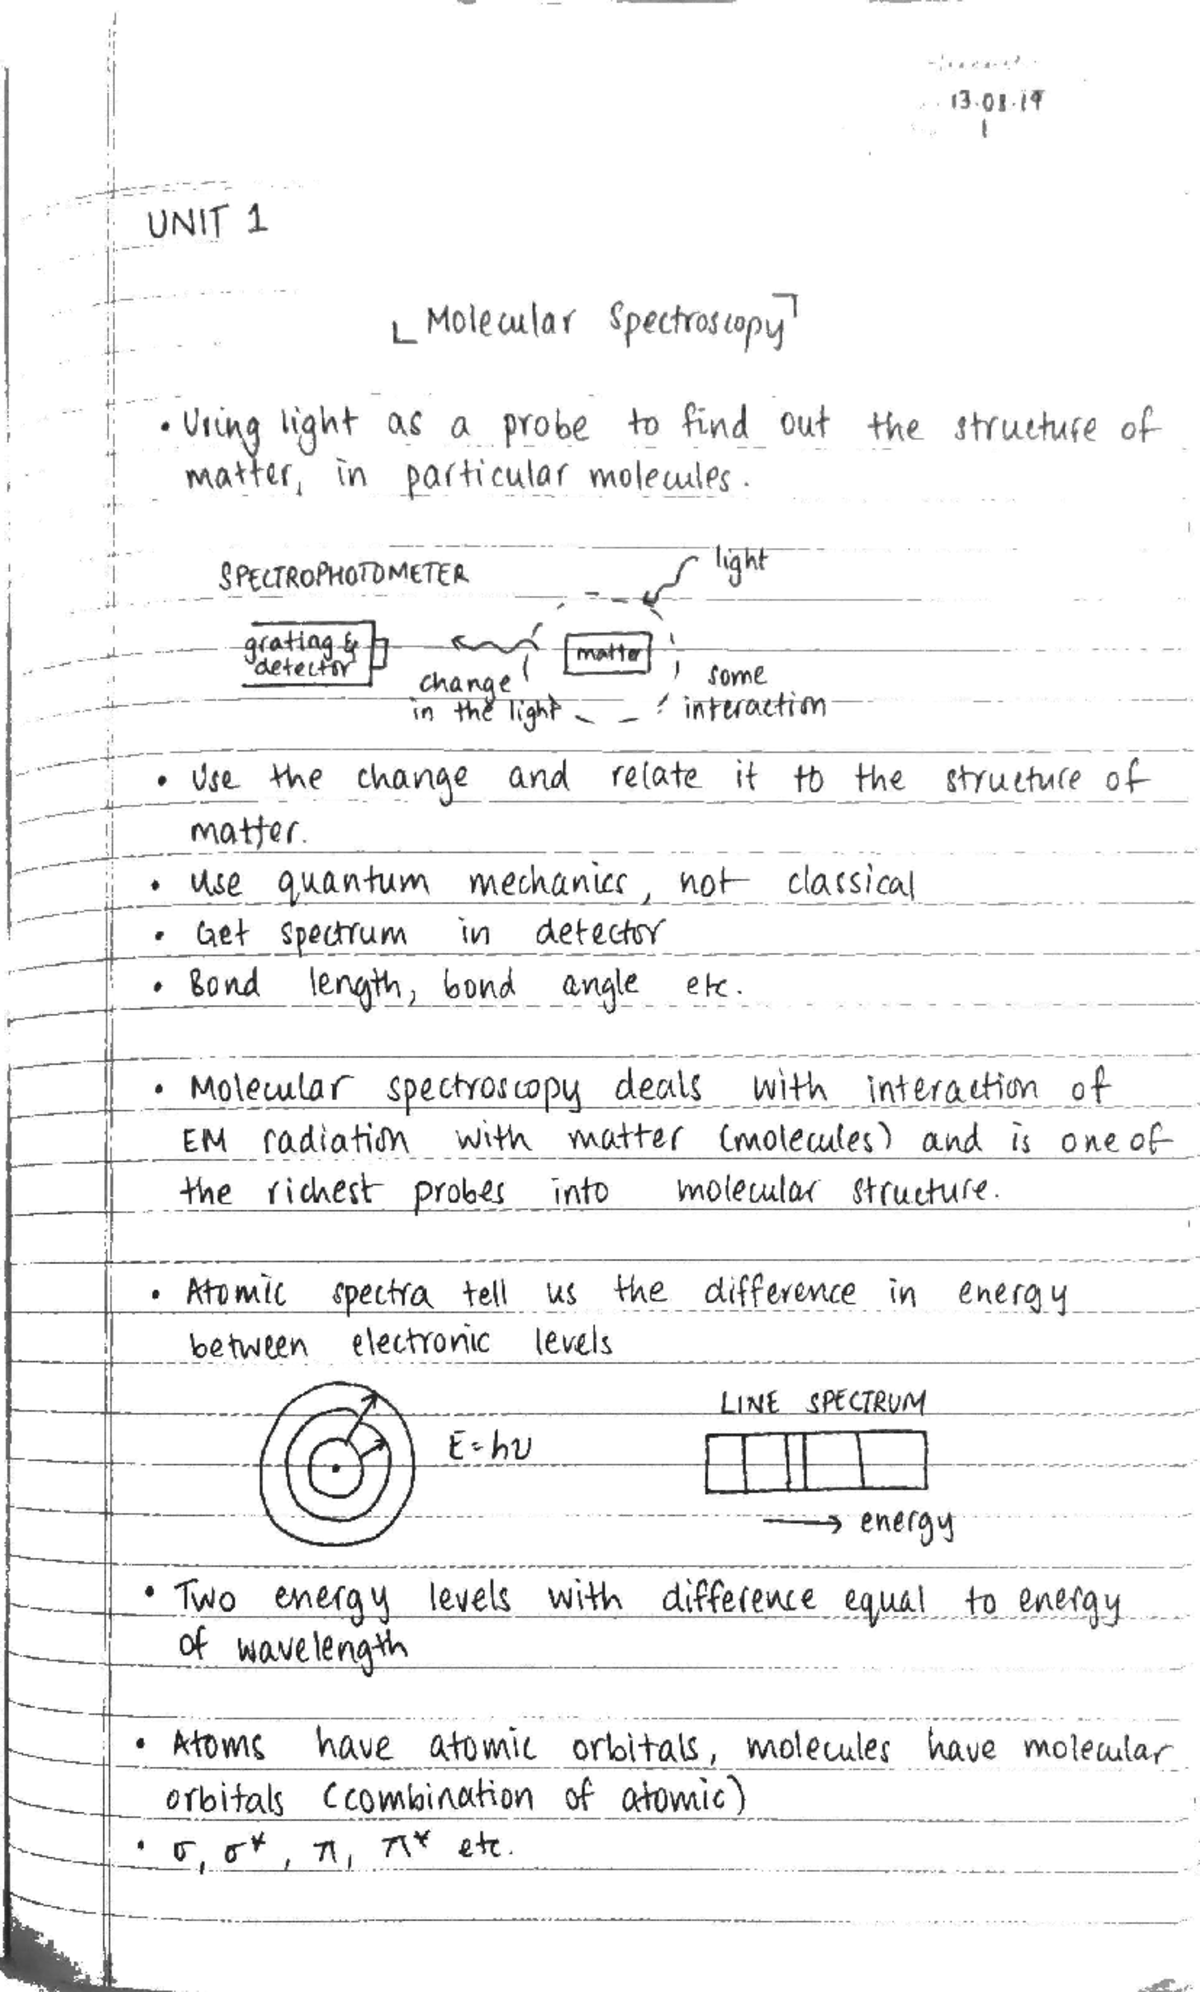 13.08.19
1
UNIT 1
Molecular Spectroscopy
• Using light as a probe to find out the structure of
matter, in particular molecules.
SPECTROPHOTOMETER
light
grating &
detector
matter
change
in the light
some
interaction
• Use the change and relate it to the structure of
matter.
• Use quantum mechanics, not classical
• Get spectrum in detector
• Bond length, bond angle etc.
• Molecular spectroscopy deals with interaction of
EM radiation with matter (molecules) and is one of
the richest probes into molecular structure.
• Atomic spectra tell us the difference in energy
between electronic levels
E = hν
LINE SPECTRUM
→ energy
• Two energy levels with difference equal to energy
of wavelength
• Atoms have atomic orbitals, molecules have molecular
orbitals (combination of atomic)
• σ, σ*, π, π* etc.